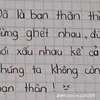 Đã là ban thân thì
đừng ghét nhau, đừ
nói xấu nhau kể cả
chúng ta không còn
ban thân!